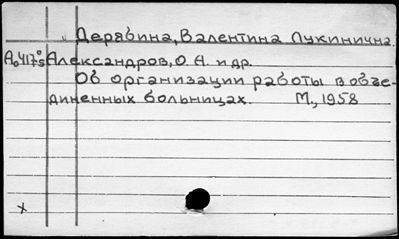 Дерябина, Валентина Лукинична.
Александров, О. А. и др.
Об организации работы в объе-
диненных больницах. М., 1958
x